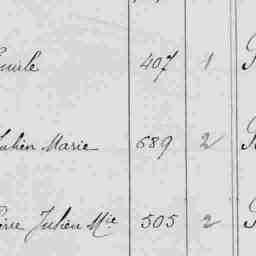 Emile 407 1
Julien Marie 689 2
Pierre Julien Mie 505 2